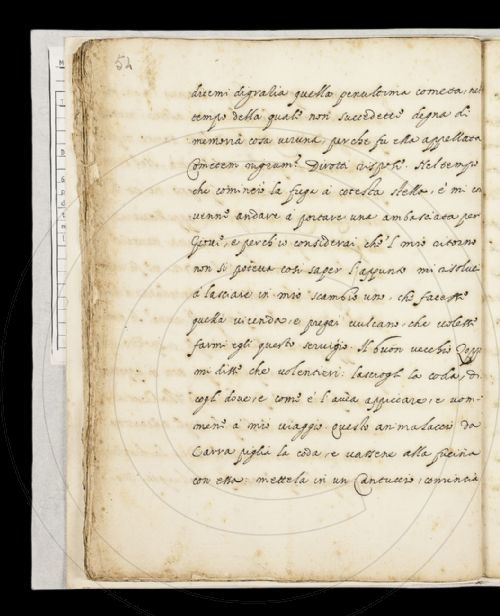 54
dicemi di gratia quella penultima cometa, nel
tempo della quale non succedette degna di
memoria cosa veruna, perche fu ella appellata
Cometem nigram? Dirotti rispose. Nel tempo
che cominciò la fuga a cotesta stella, e mi co
venne andare a portare una ambasciata per
Giove, e perch'io considerai che 'l mio ritorno
non si poteva così saper l'appunto mi risolvei
a lasciare in mio scambio uno, che facesse
quella vicenda, e pregai vulcano, che volesse
farmi egli questo servigio. Il buon vecchio Zopp
mi disse che volentieri: lasciogli la coda, di
cogli dove, e come e l'avea appiccare, e vom
mene a mio viaggio. Questo animalaccio da
Carra piglia la coda, e vassene alla fucina
con essa: mettela in un Cantuccio, comincia